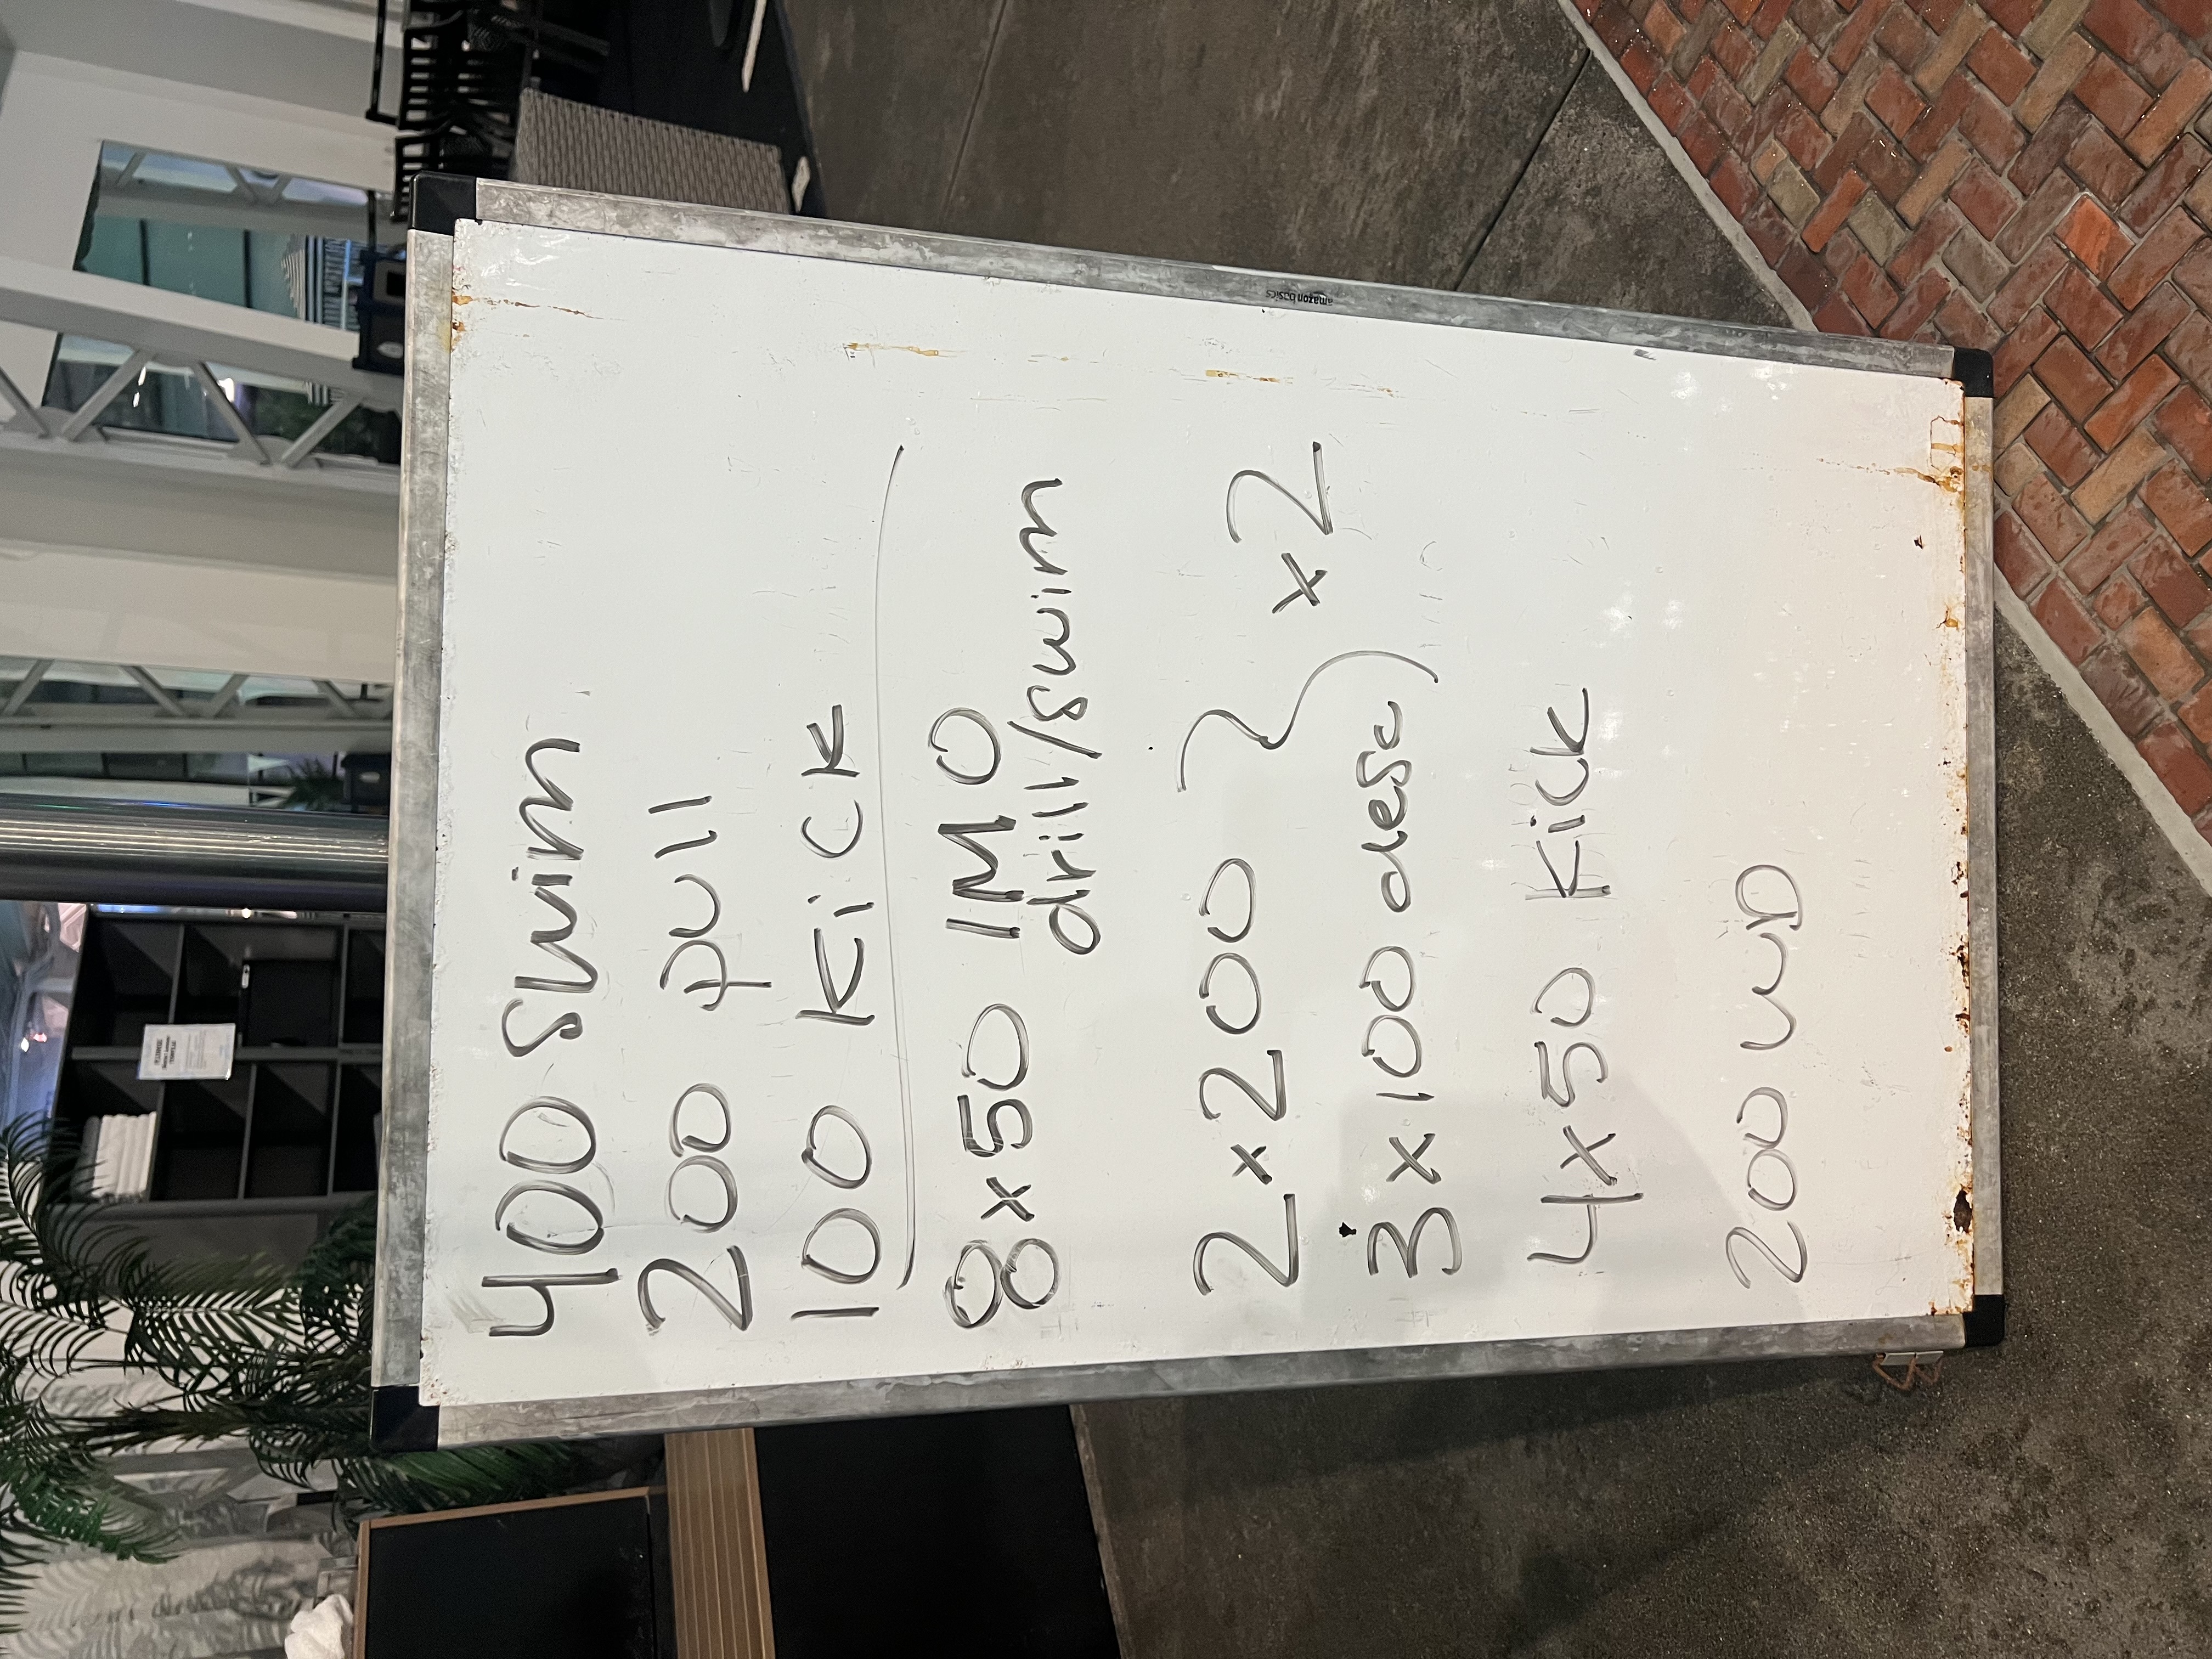 400 swim
200 pull
100 kick
8x50 IMO
drill/swim
2x200 } x2
3x100 desc
4x50 kick
200 WD
amazon basics